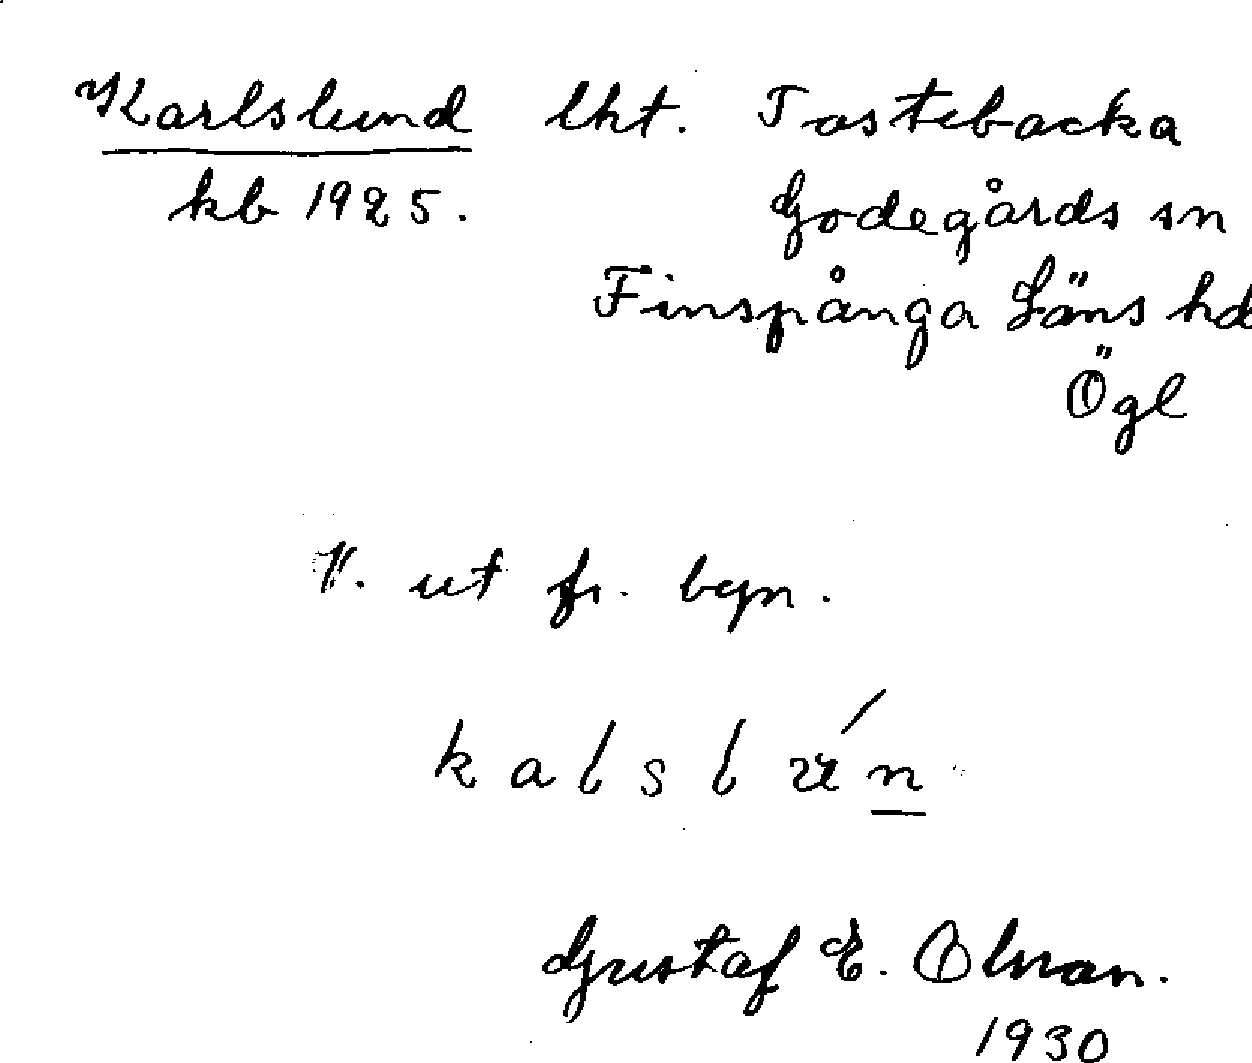 Karlslund lht. Tostebacka
kb 1925. Godegårds sn
Finspånga Läns hd
Ögl
V. ut fr. byn.
Gustaf E. Olnan.
1930